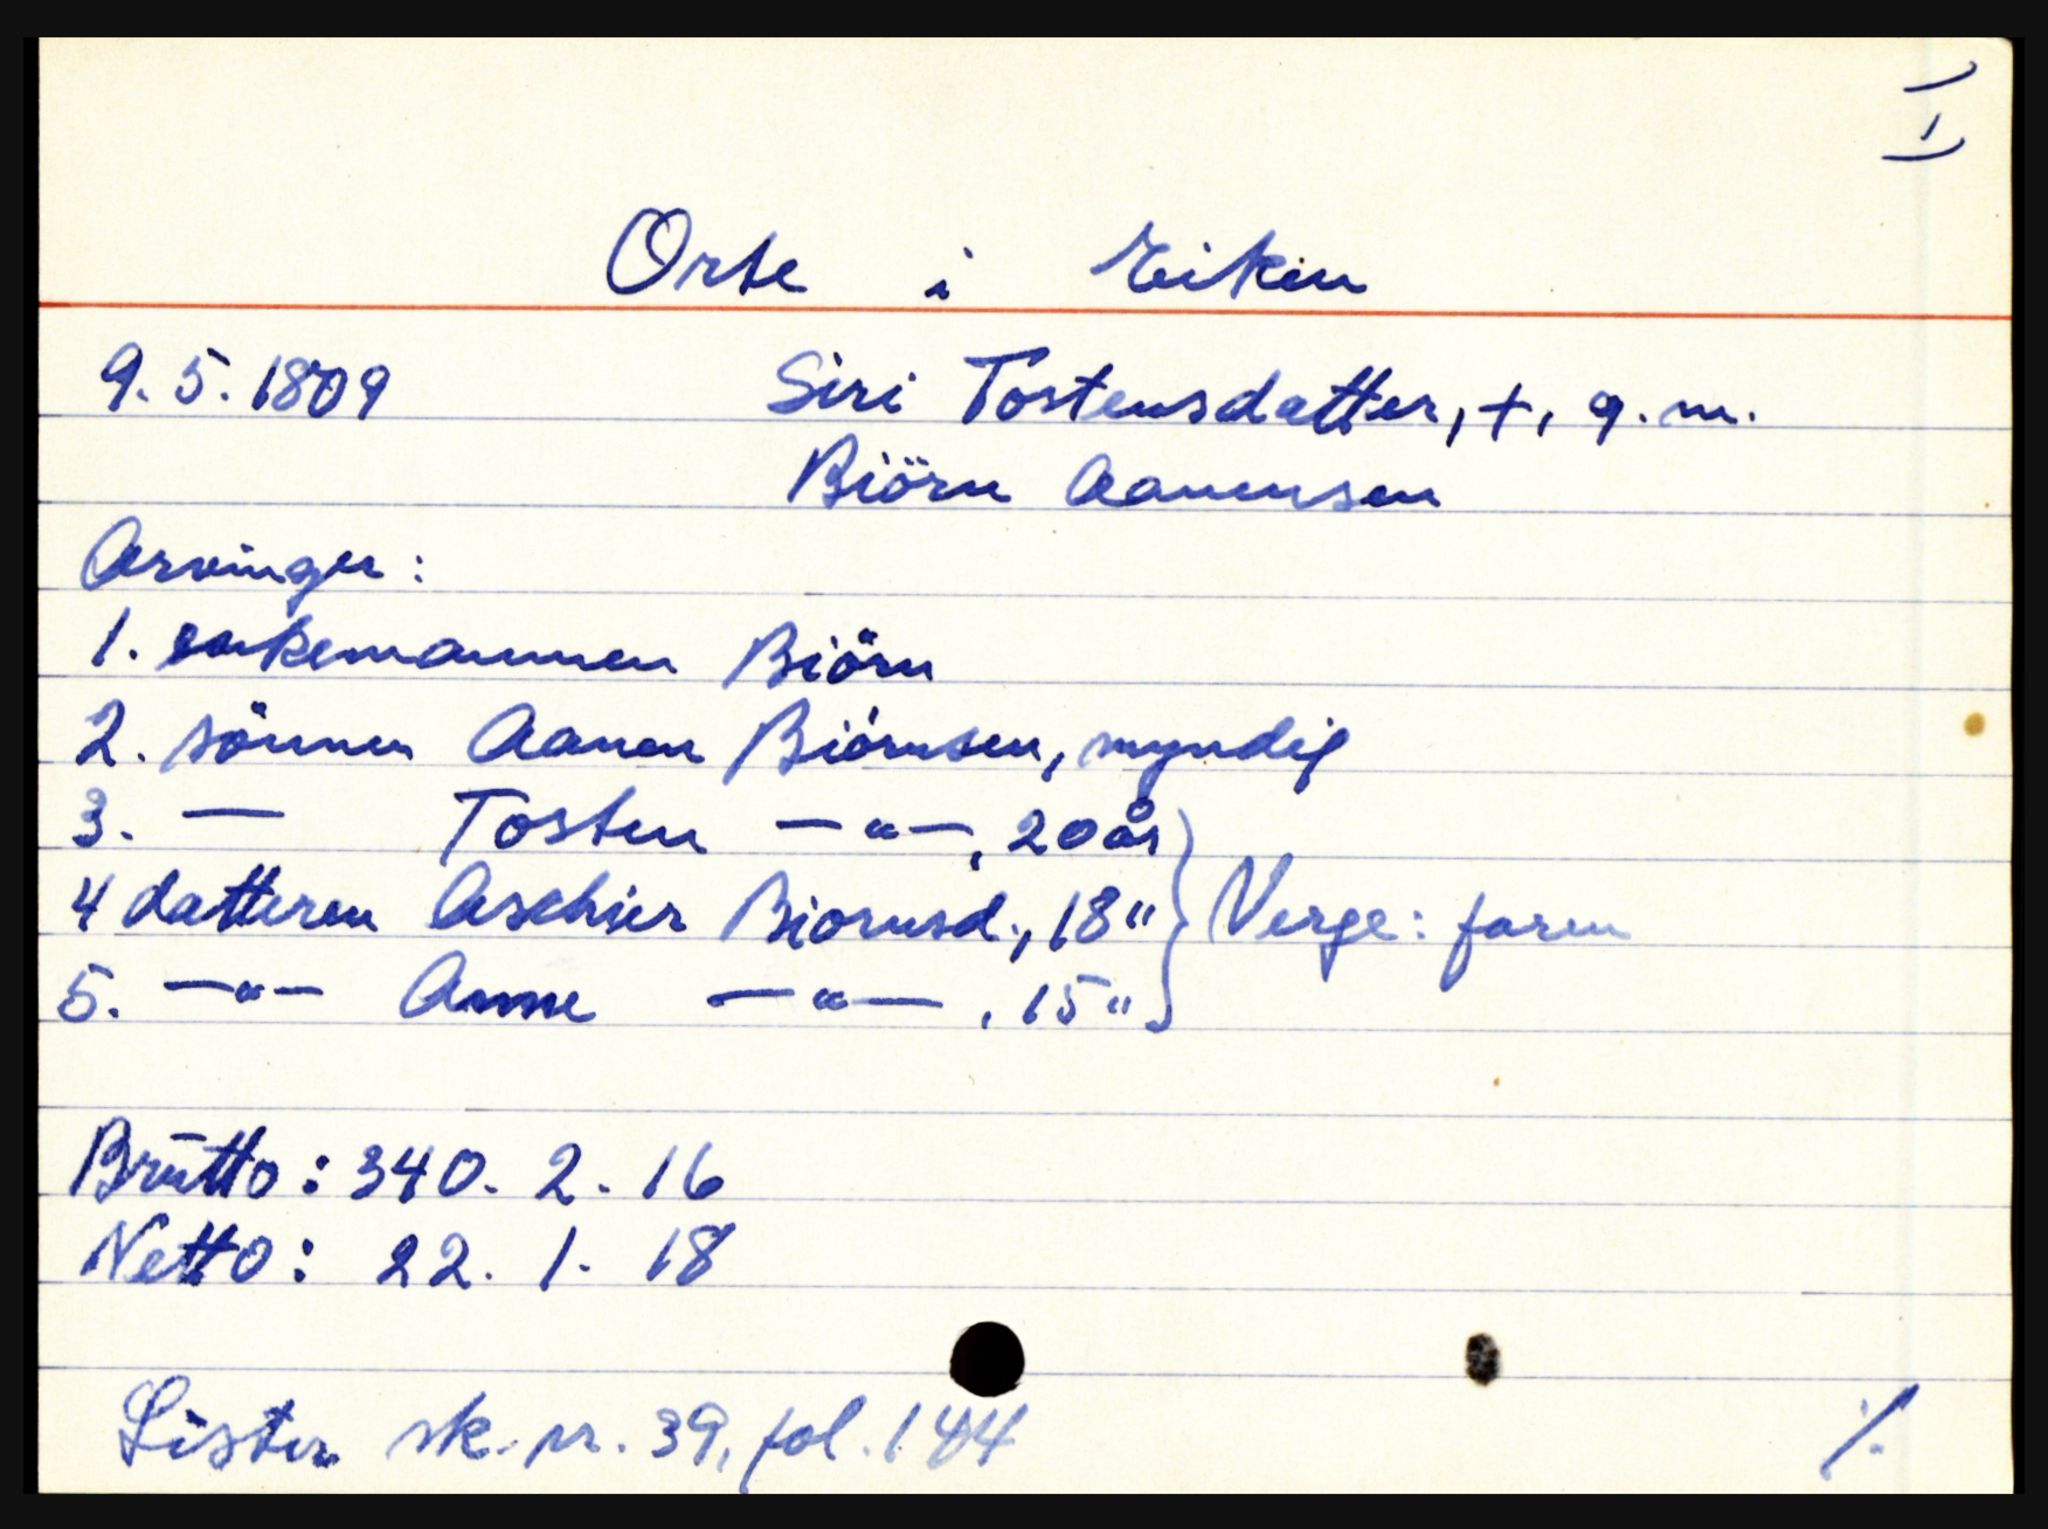 I
Orte i Eiken
9.5.1809 Siri Tostensdatter, +, g.m.
Biörn Aanensen
Arvinger:
1. enkemannen Biörn
2. sönnen Aanen Biörnsen, myndig
3. — Tosten —"—, 20 år
4 datteren Aschier Biornsd., 18 " } Verge: faren
5. —"— Anne —"—, 15 "
Brutto: 340. 2. 16
Netto: 22. 1. 18
Lister sk. pr. 39, fol. 144 ./.